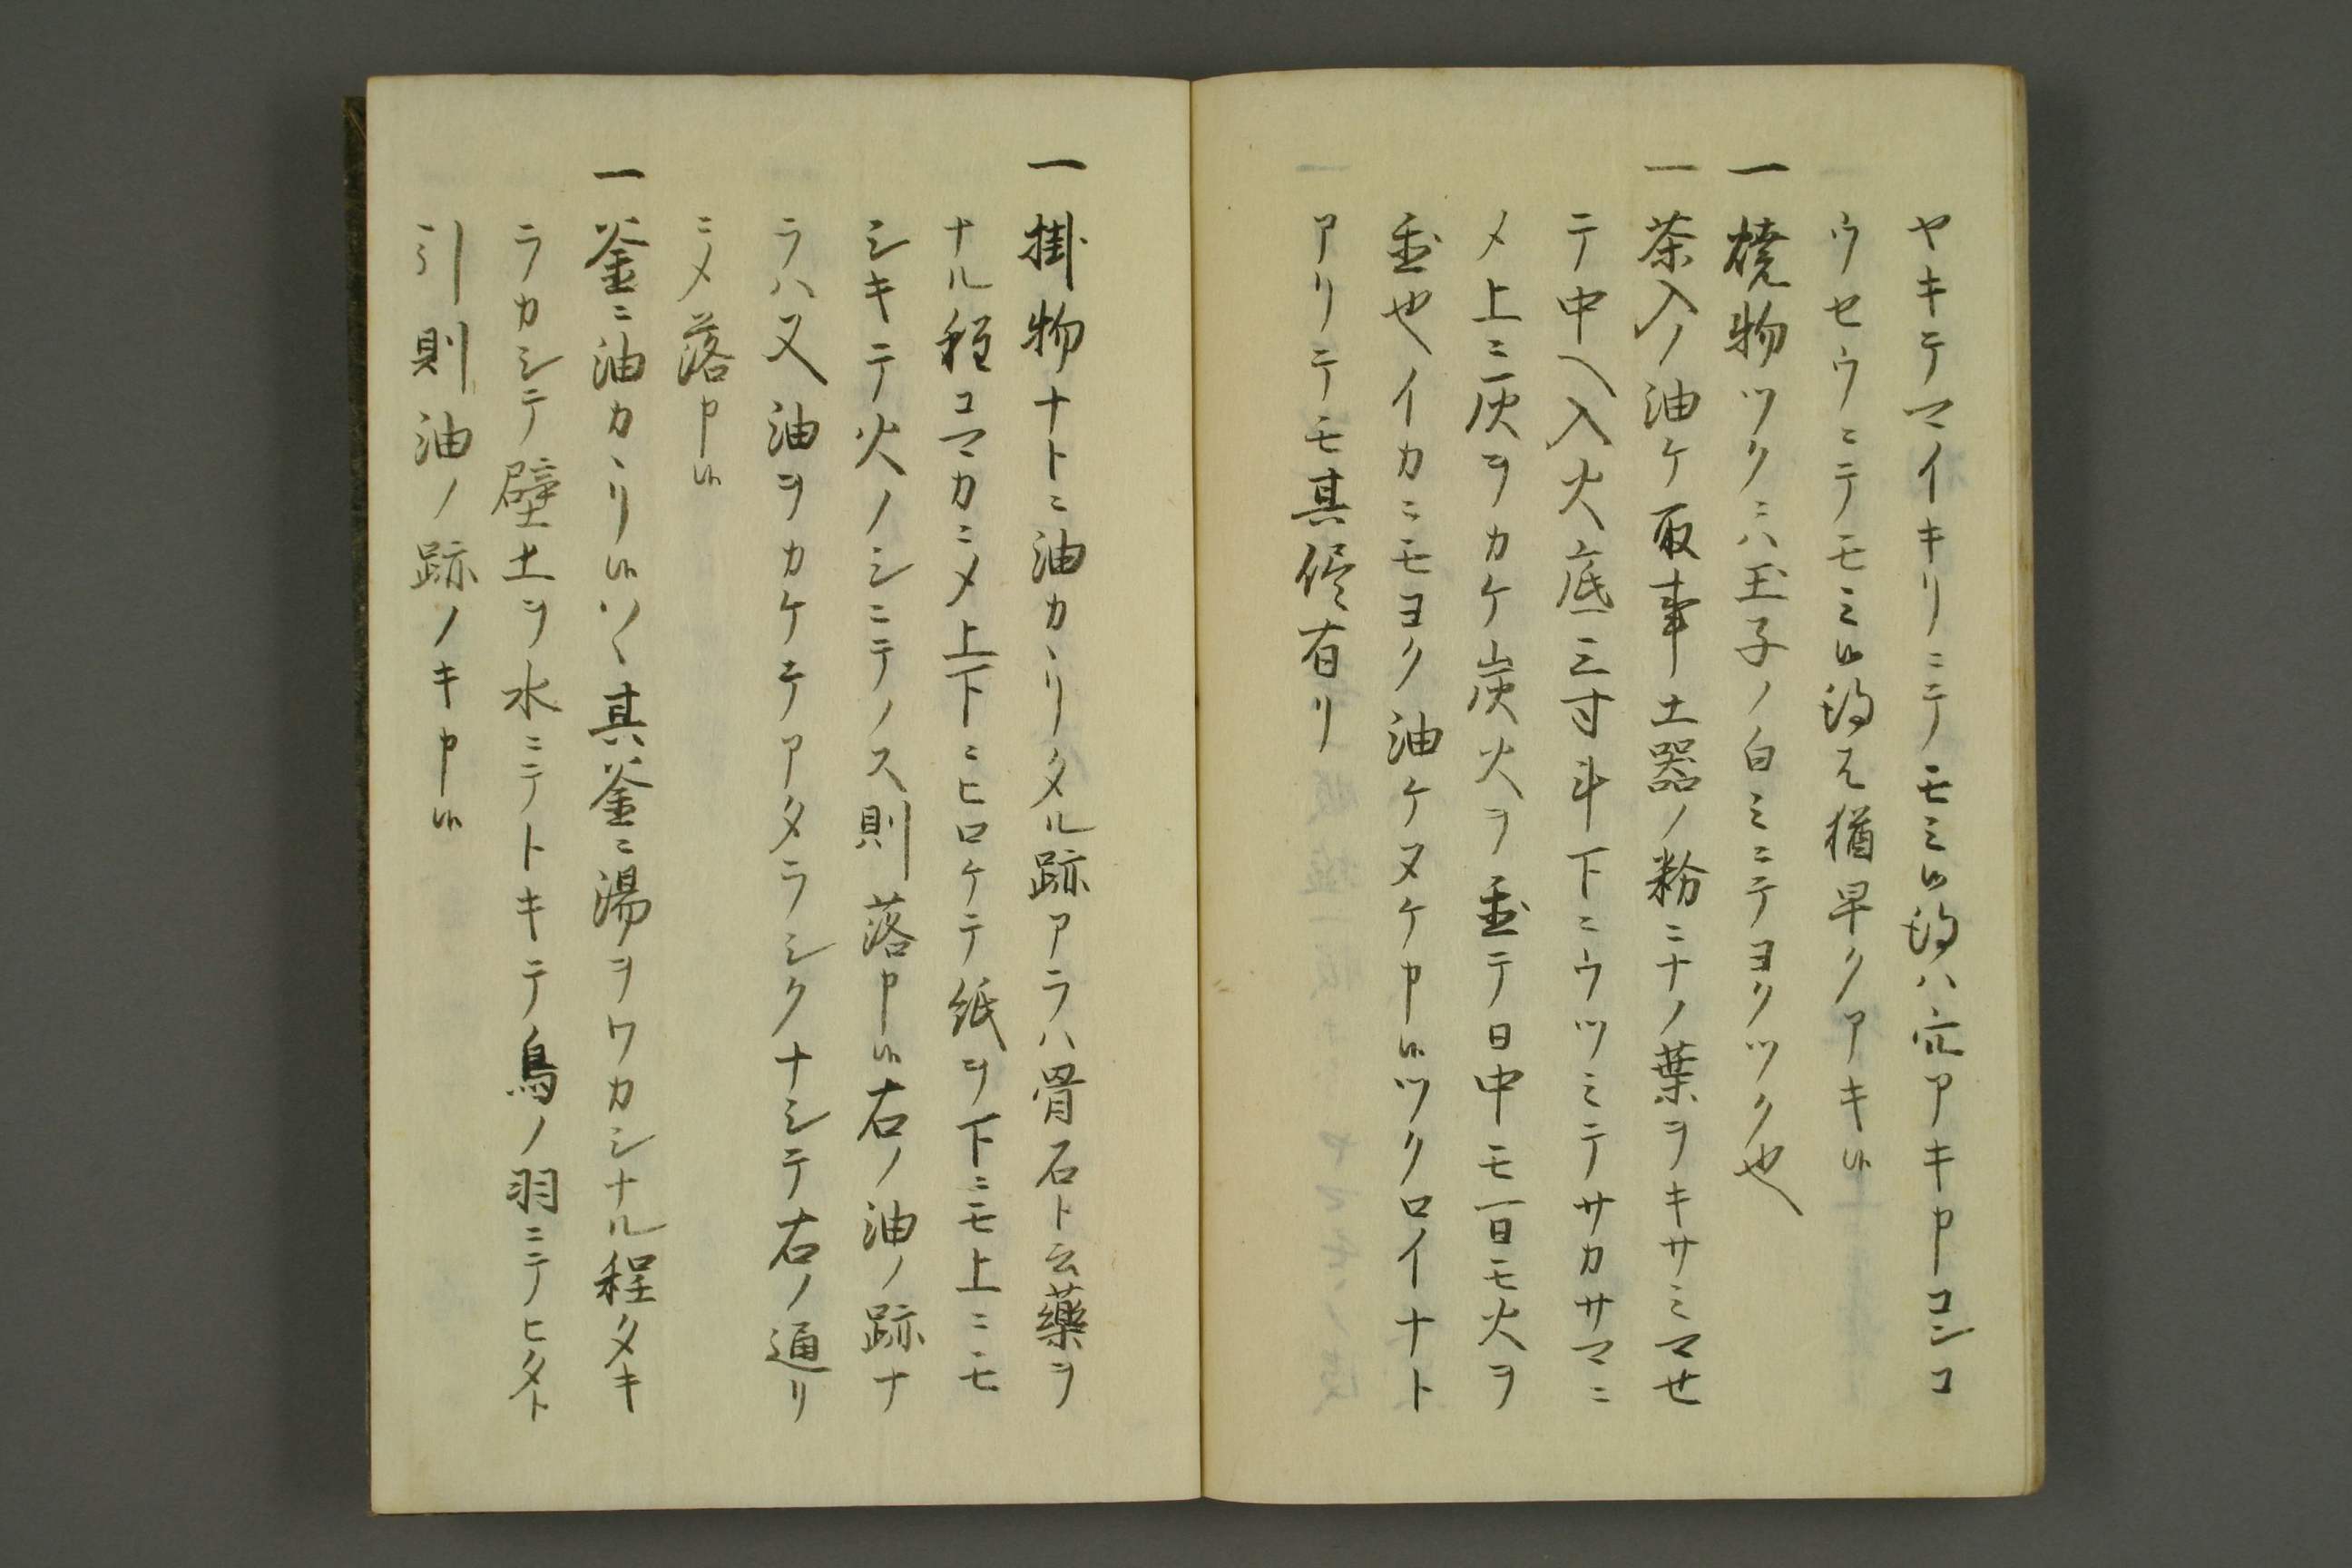 ヤキテマイキリニテモミ候得ハ穴アキ申コンコ
ウセウニテモミ候得は猶早クアキ候
一焼物ツクニハ玉子ノ白ミニテヨクツク也
一茶入ノ油ケ取事土器ノ粉ニナノ葉ヲキサミマせ
テ中ヘ入火底三寸斗下ニウツミテサカサマニ
メ上ニ灰ヲカケ炭火ヲ置テ日中モ一日モ火ヲ
置也イカニモヨク油ケヌケ申候ツクロイナト
アリテモ其儘有リ
一掛物ナトニ油カヽリタル跡アラハ骨石ト云藥ヲ
ナル程コマカニメ上下ニヒロケテ紙ヲ下ニモ上ニモ
シキテ火ノシニテノス則落申候右ノ油ノ跡ナ
ラハ又油ヲカケテアタラシクナシテ右ノ通リ
ニメ落申候
一釜ニ油カヽリ候ハヽ其釜ニ湯ヲワカシナル程タキ
ラカシテ壁土ヲ水ニテトキテ鳥ノ羽ニテヒタト
引則油ノ跡ノキ申候